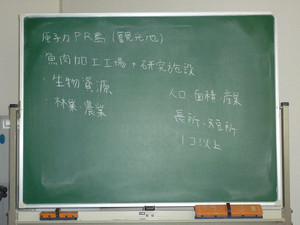 原子力PR島(観光地)
・魚肉加工工場+研究施設
・生物資源
・林業 農業
人口・面積・産業
長所・短所
1コ以上